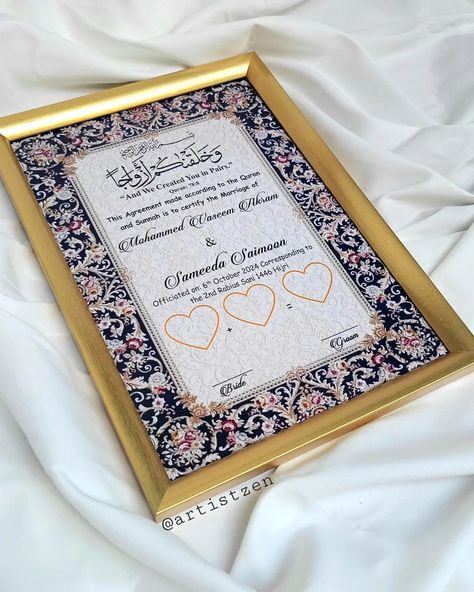 بسم الله الرحمن الرحيم
وَخَلَقْنَاكُمْ أَزْوَاجًا
"And We Created You in Pairs,"
Quran: 78:8
This Agreement made according to the Quran
and Sunnah is to certify the Marriage of
Mohammed Vaseem Akram
&
Sameeda Saimoon
Officiated on: 6th October 2024 Corresponding to
the 2nd Rabius Sani 1446 Hijri
+ =
Bride
Groom
@artistzen